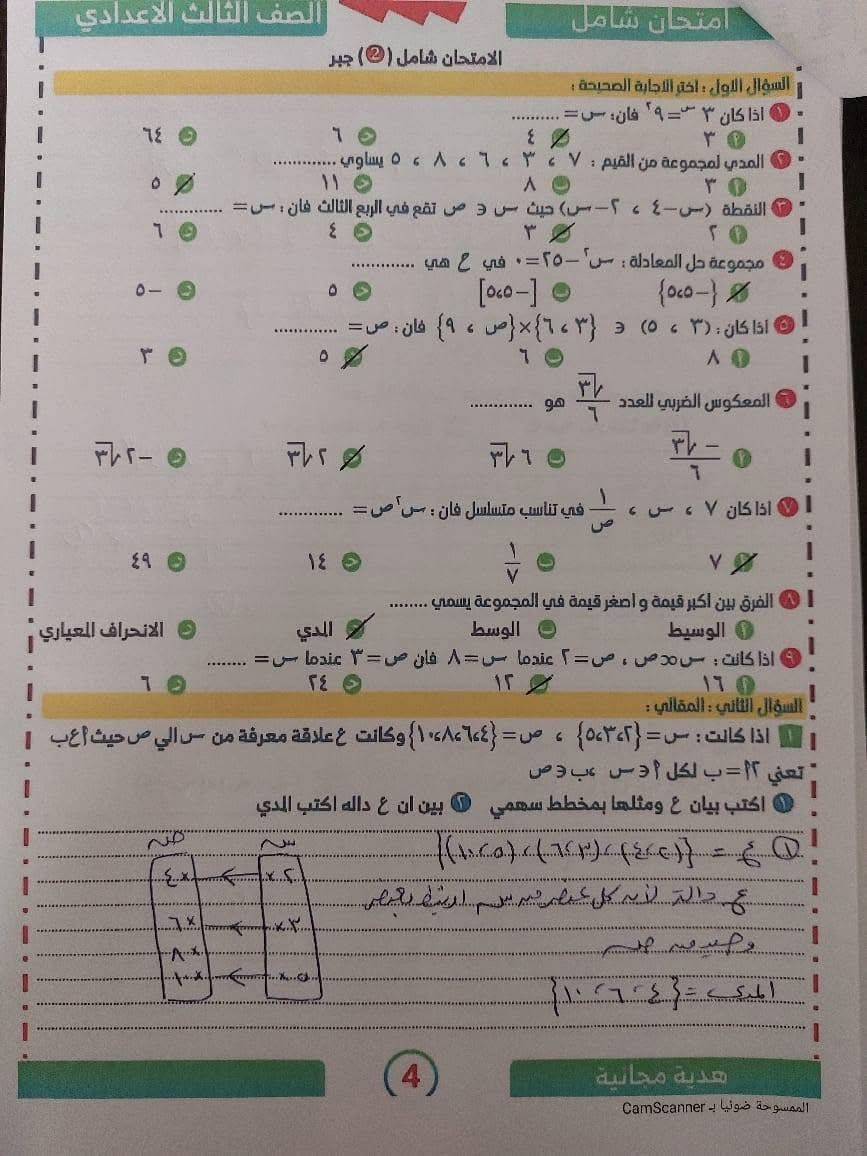 امتحان شامل
الصف الثالث الاعدادي
الامتحان شامل (2) جبر
السؤال الاول : اختر الاجابة الصحيحة :
١ اذا كان ٣ س = ٩ ٢ فان : س = ..........
أ ٣ ب ٤ ج ٦ د ٦٤
٢ المدي لمجموعة من القيم : ٧ ، ٣ ، ٦ ، ٨ ، ٥ يساوي .............
أ ٣ ب ٨ ج ١١ د ٥
٣ النقطة (س-٤ ، ٢-س) حيث س ∈ ص تقع في الربع الثالث فان : س = .............
أ ٢ ب ٣ ج ٤ د ٦
٤ مجموعة حل المعادلة : س٢ -٢٥ = ٠ في ع هي .............
أ {-٥،٥} ب [-٥،٥] ج ٥ د -٥
٥ اذا كان : (٣ ، ٥) ∈ {٣ ، ٦}×{ص ، ٩} فان : ص = .............
أ ٨ ب ٦ ج ٥ د ٣
٦ المعكوس الضربي للعدد √٣/٦ هو .............
أ -√٣/٦ ب ٦√٣ ج ٢√٣ د -٢√٣
٧ اذا كان ٧ ، س ، ١/ص في تناسب متسلسل فان : س٢ص = .............
أ ٧ ب ١/٧ ج ١٤ د ٤٩
٨ الفرق بين اكبر قيمة و اصغر قيمة في المجموعة يسمي ........
أ الوسيط ب الوسط ج المدي د الانحراف المعياري
٩ اذا كانت : س∝ص ، ص=٢ عندما س=٨ فان ص=٣ عندما س = ........
أ ١٦ ب ١٢ ج ٢٤ د ٦
السؤال الثاني : المقالي :
١ اذا كانت : س = {٢،٣،٥} ، ص = {٤،٦،٨،١٠} وكانت ع علاقة معرفة من س الي ص حيث أ ع ب
تعني ٢أ = ب لكل أ ∈ س ، ب ∈ ص
١ اكتب بيان ع ومثلها بمخطط سهمي ٢ بين ان ع داله اكتب المدي
١ ع = {(٢،٤)،(٣،٦)،(٥،١٠)}
ع دالة لأن كل عنصر من س ارتبط بعنصر
وحيد من ص
المدى = {٤،٦،١٠}
س ص
٢ ٤
٣ ٦
٨
٥ ١٠
هدية مجانية
4
الممسوحة ضوئيا بـ CamScanner